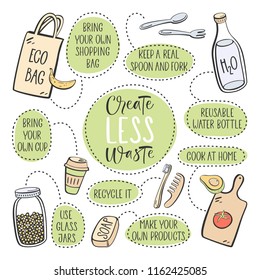 BRING
YOUR OWN
SHOPPING
BAG
KEEP A REAL
SPOON AND FORK
ECO
BAG
H₂O
BRING
YOUR
OWN CUP
Create
LESS
Waste
REUSABLE
WATER BOTTLE
COOK AT HOME
RECYCLE IT
USE
GLASS
JARS
SOAP
MAKE YOUR
OWN PRODUCTS
shutterstock.com · 1162425085